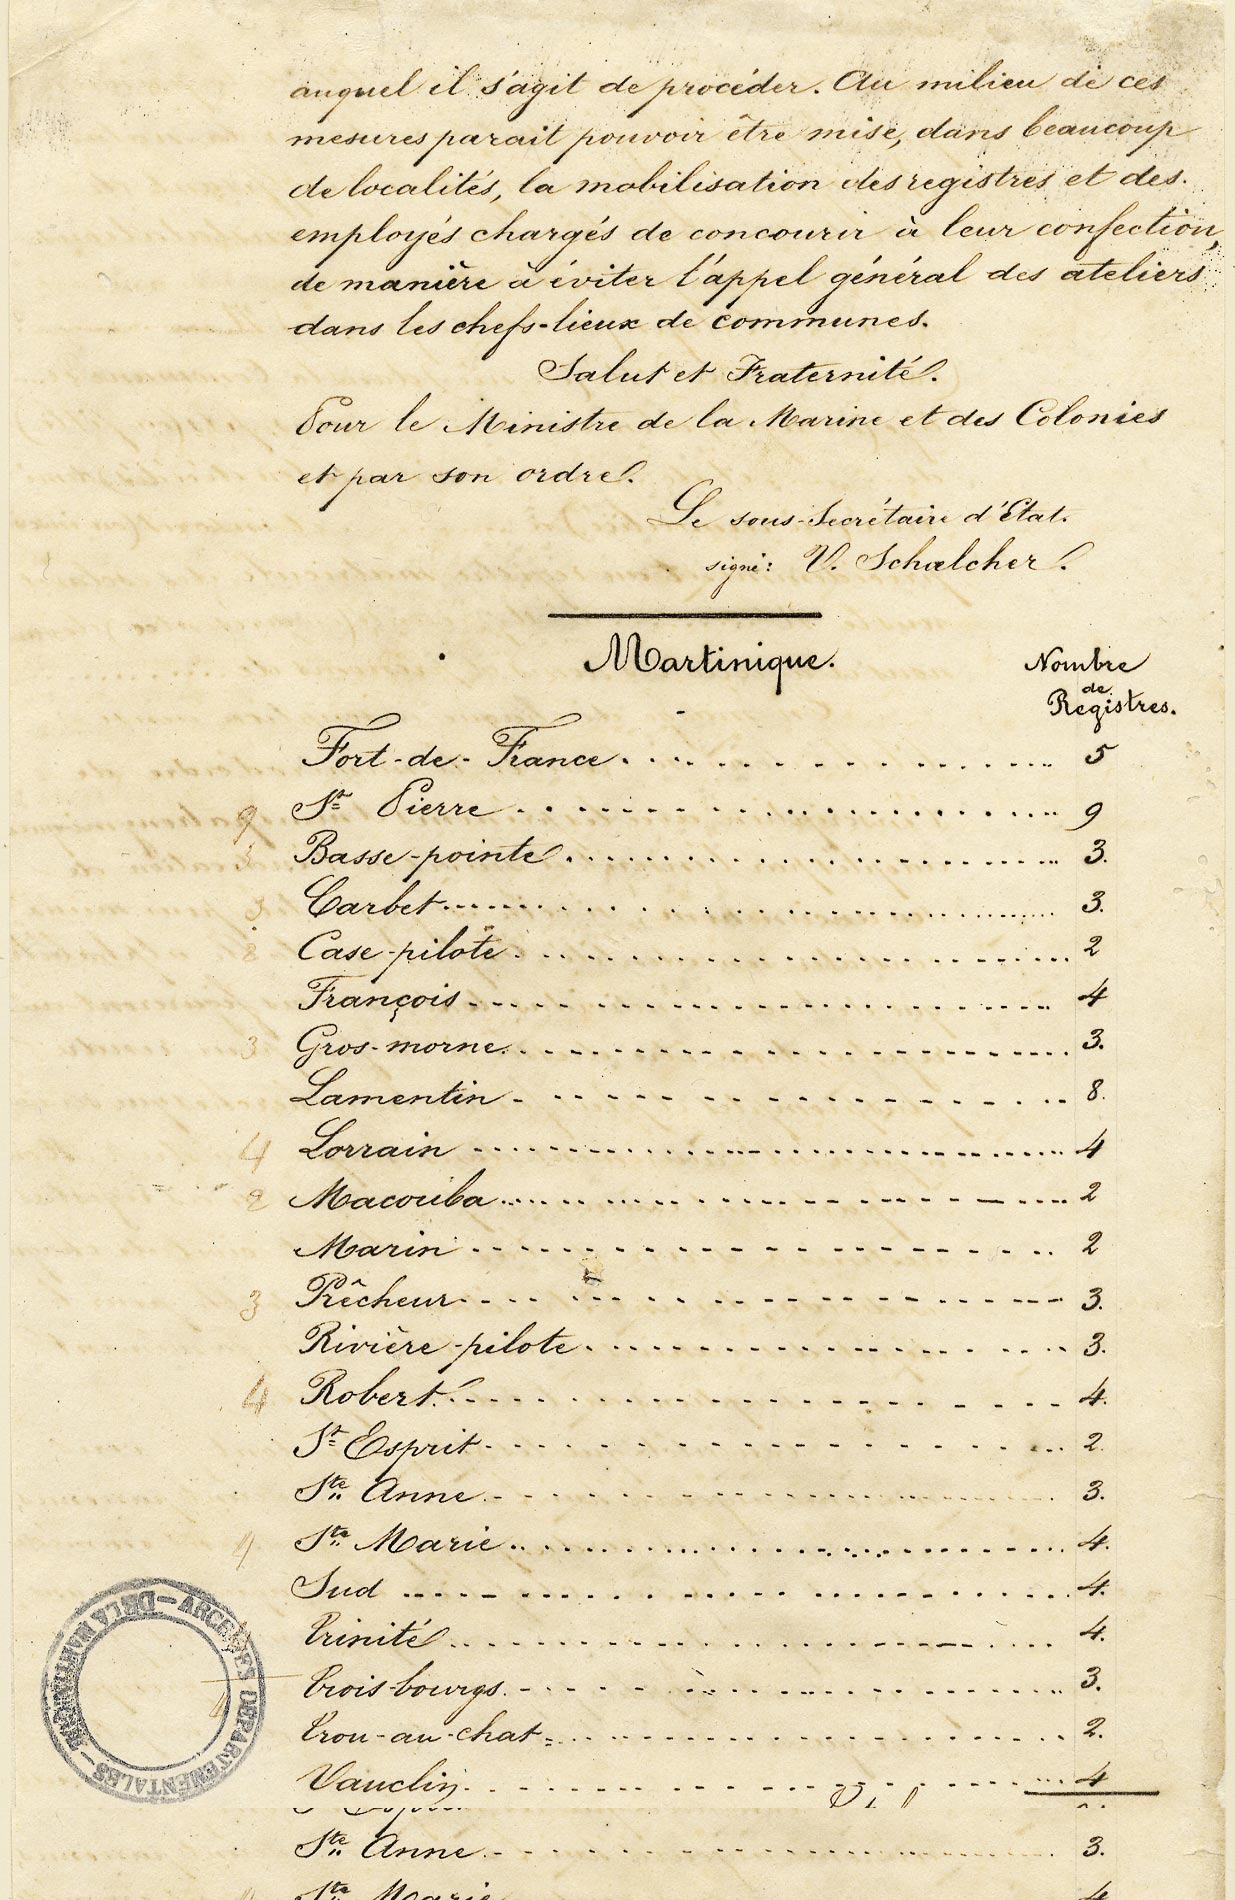 auquel il s'agit de procéder. Au milieu de ces
mesures parait pouvoir être mise, dans beaucoup
de localités, la mobilisation des registres et des
employés chargés de concourir à leur confection,
de manière à éviter l'appel général des ateliers
dans les chefs-lieux de communes.
Salut et Fraternité.
Pour le Ministre de la Marine et des Colonies
et par son ordre.
Le sous-Secrétaire d'Etat.
signé: V. Schœlcher.
Martinique.
Nombre
de
Registres.
Fort-de-France 5
9 St Pierre 9
3 Basse-pointe 3.
3 Carbet 3.
2 Case-pilote 2
François 4
3 Gros-morne 3.
Lamentin 8.
4 Lorrain 4
2 Macouba 2
Marin 2
3 Prêcheur 3.
Rivière-pilote 3.
4 Robert 4.
St Esprit 2.
Ste Anne 3.
4 Ste Marie 4.
Sud 4.
Trinité 4.
Trois-bourgs 3.
Trou-au-chat 2.
Vauclin 4
Ste Anne 3.
Ste Marie 4
ARCHIVES DÉPARTEMENTALES - DE LA MARTINIQUE -